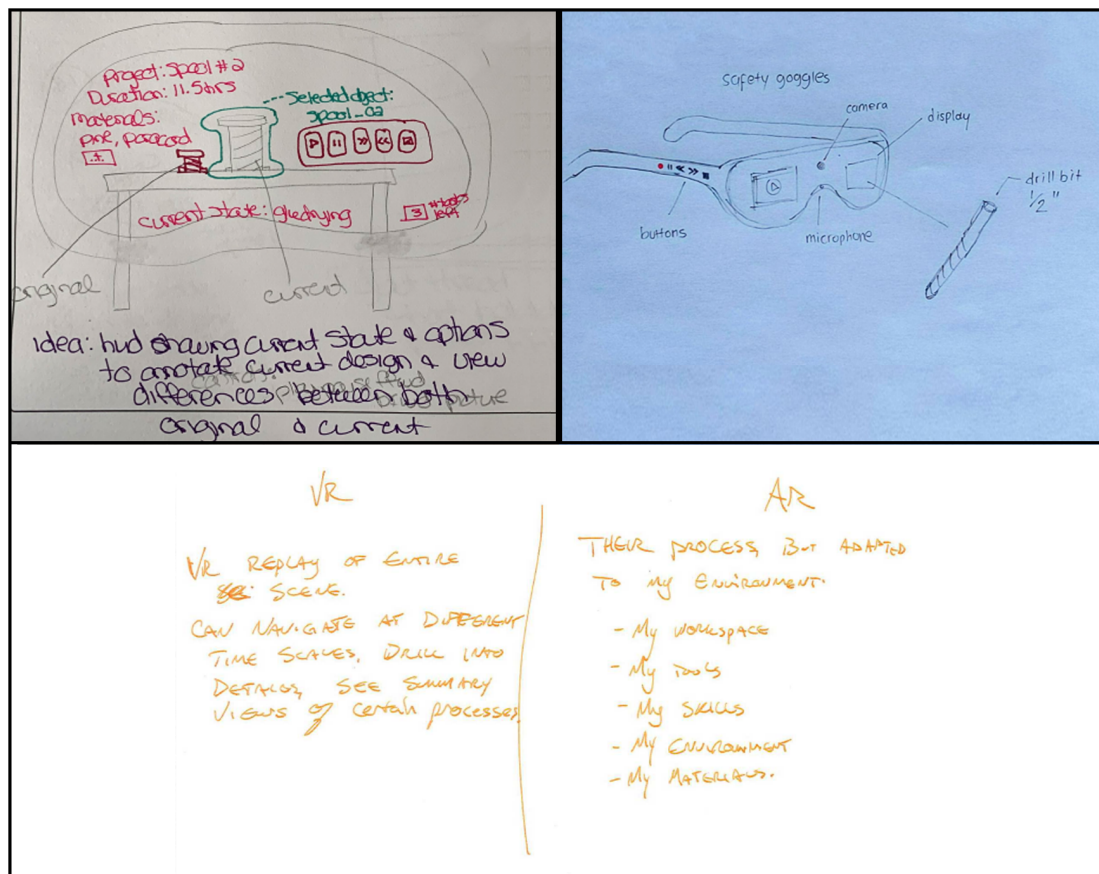 Project: Spool #2
Duration: 11.5hrs
Materials:
pine, paracord
Selected object:
Spool_02
current state: glue drying
3
left
original
current
idea: hud showing current state & options
to annotate current design & view
differences between both
original & current
safety goggles
camera
display
drill bit
1/2"
buttons
microphone
VR
VR REPLAY OF ENTIRE
SCENE.
CAN NAVIGATE AT DIFFERENT
TIME SCALES, DRILL INTO
DETAILS, SEE SUMMARY
VIEWS of certain processes.
AR
THEIR PROCESS, BUT ADAPTED
TO MY ENVIRONMENT.
- MY WORKSPACE
- MY TOOLS
- MY SKILLS
- MY ENVIRONMENT
- MY MATERIALS.